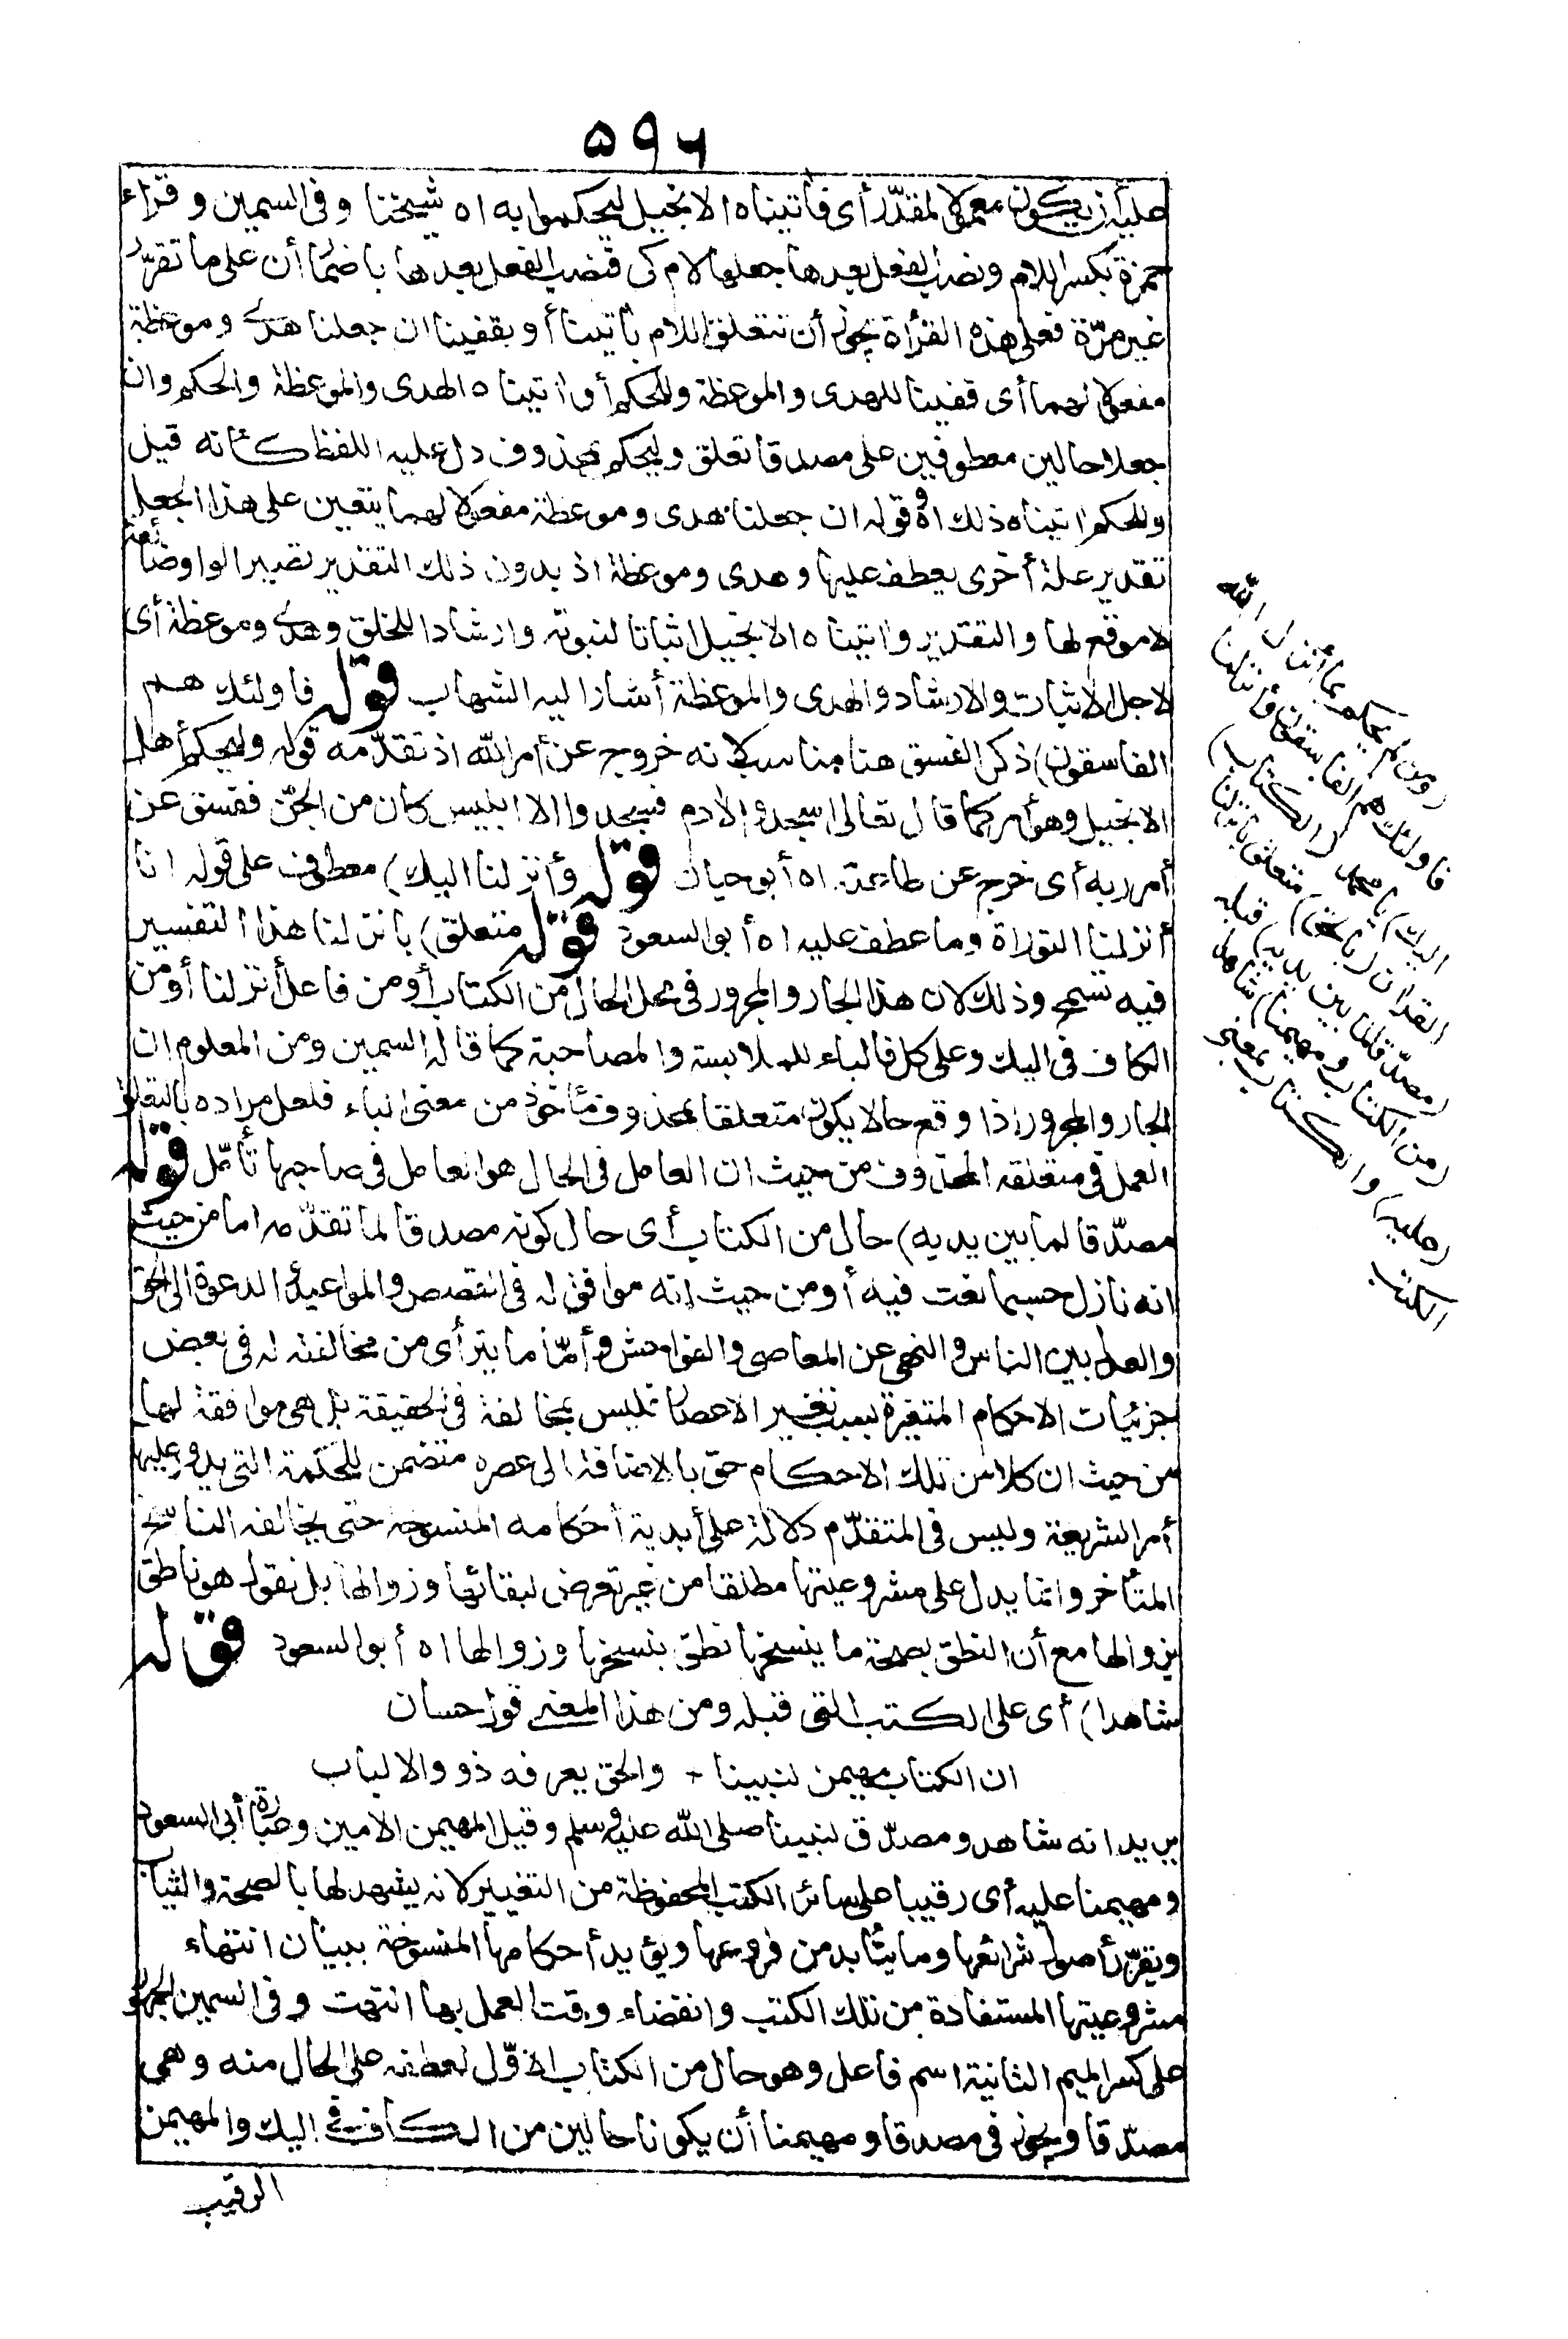 ۵۹۶
عليه أن يكون معمولا لمقدّر أى فأتيناه الانجيل ليحكموا به اه شيخنا وفى السمين وقراء
حمزة بكسر اللام ونصب الفعل بعدها جعلها لام كى فنصب الفعل بعدها باضمار أن على ما تقرّر
غير مرّة فعلى هذه القرأة يجوز أن تتعلق اللام بأتينا أو بقفينا ان جعلنا هدى وموعظة
مفعولا لهما أى قفينا للهدى والموعظة وللحكم أو اتيناه الهدى والموعظة والحكم وان
جعلا حالين معطوفين على مصدقا تعلق وليحكم بمحذوف دل عليه اللفظ كأنه قيل
وللحكم اتيناه ذلك اه وقوله ان جعلنا هدى وموعظة مفعولا لهما يتعين على هذا الجعل
تقدير علة أخرى يعطف عليها وهدى وموعظة اذ بدون ذلك التقدير تصير الواو ضائعة
لا موقع لها والتقدير واتيناه الانجيل اثباتا لنبوته وارشادا للخلق وهدى وموعظة أى
لاجل الاثبات والارشاد والهدى والموعظة أشار اليه الشهاب قوله فاولئك هم
الفاسقون) ذكر الفسق هنا مناسب لانه خروج عن أمر الله اذ تقدّمه قوله وليحكم أهل
الانجيل وهو أمر كما قال تعالى اسجدوا لادم فسجدوا الا ابليس كان من الجنّ ففسق عن
أمر ربه أى خرج عن طاعته اه أبو حيان قوله وأنزلنا اليك) معطوف على قوله انا
أنزلنا التوراة وما عطف عليه اه أبو السعود قوله متعلق) بانزلنا هذا التفسير
فيه تسمح وذلك لان هذا الجار والمجرور فى محل الحال من الكتاب أو من فاعل أنزلنا أو من
الكاف فى اليك وعلى كل فالباء للملابسة والمصاحبة كما قاله السمين ومن المعلوم ان
الجار والمجرور اذا وقع حالا يكون متعلقا بمحذوف مأخوذ من معنى الباء فلعل مراده بالتعلق
العمل فى متعلقه المحذوف من حيث ان العامل فى الحال هو العامل فى صاحبها تأمّل قوله
مصدّقا لما بين يديه) حال من الكتاب أى حال كونه مصدقا لما تقدّمه اما من حيث
انه نازل حسبما نعت فيه أو من حيث انه موافق له فى القصص والمواعيد والدعوة الى الحق
والعدل بين الناس والنهى عن المعاصى والفواحش وأمّا ما يترأى من مخالفته له فى بعض
جزئيات الاحكام المتغيرة بسبب تغير الاعصار فليس بمخالفة فى الحقيقة بل هى موافقة لها
من حيث ان كلا من تلك الاحكام حق بالاضافة الى عصره متضمن للحكمة التى يدور عليها
أمر الشريعة وليس فى المتقدّم دلالة على أبدية أحكامه المنسوخة حتى يخالفه الناسخ
المتأخر وانما يدل على مشروعيتها مطلقا من غير تعرض لبقائها وزوالها بل نقول هو ناطق
بزوالها مع أن النطق بصحة ما ينسخها نطق بنسخها وزوالها اه أبو السعود قوله
شاهدا) أى على الكتب التى قبله ومن هذا المعنى قول حسان
ان الكتاب مهيمن لنبينا - والحق يعرفه ذوو الالباب
يريد انه شاهد ومصدّق لنبينا صلى الله عليه وسلم وقيل المهيمن الامين وعبارة أبى السعود
ومهيمنا عليه أى رقيبا على سائر الكتب المحفوظة من التغيير لانه يشهد لها بالصحة والثبات
ويقرّر أصول شرائعها وما يتأبد من فروعها ويؤيد أحكامها المنسوخة ببيان انتهاء
مشروعيتها المستفادة من تلك الكتب وانقضاء وقت العمل بها انتهت وفى السمين الجمهور
على كسر الميم الثانية اسم فاعل وهو حال من الكتاب الاوّل لعطفه على الحال منه وهى
مصدّقا ويجوز فى مصدقا ومهيمنا أن يكونا حالين من الكاف فى اليك والمهيمن
الرقيب
(ومن لم يحكم بما أنزل الله
فاولئك هم الفاسقون وأنزلنا
اليك) يا محمد (الكتاب)
القرآن (بالحق) متعلق بانزلنا
(مصدّقا لما بين يديه) قبله
(من الكتاب ومهيمنا) شاهدا
(عليه) والكتاب بمعنى
الكتب